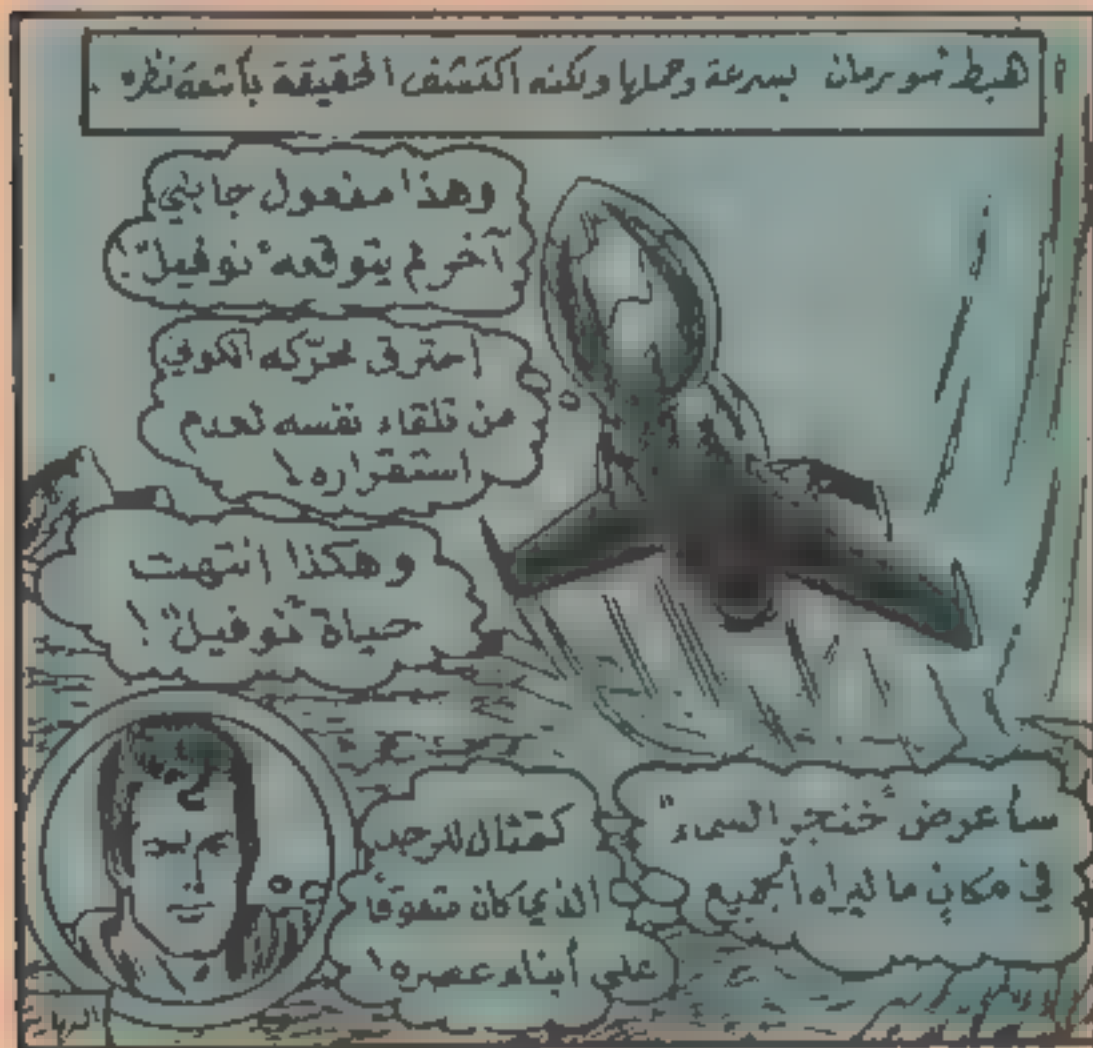 هبط سوبرمان بسرعة وحملها ولكنه اكتشف الحقيقة بأشعة نظره .
وهذا مفعول جانبي
آخر لم يتوقعه "نوفيل"!
احترق محرّكه الكوني
من تلقاء نفسه لعدم
استقراره!
وهكذا انتهت
حياة "نوفيل"!
سأعرض "خنجر السماء"
في مكانٍ ما ليراه الجميع
كتمثال للرجل
الذي كان متفوقاً
على أبناء عصره!